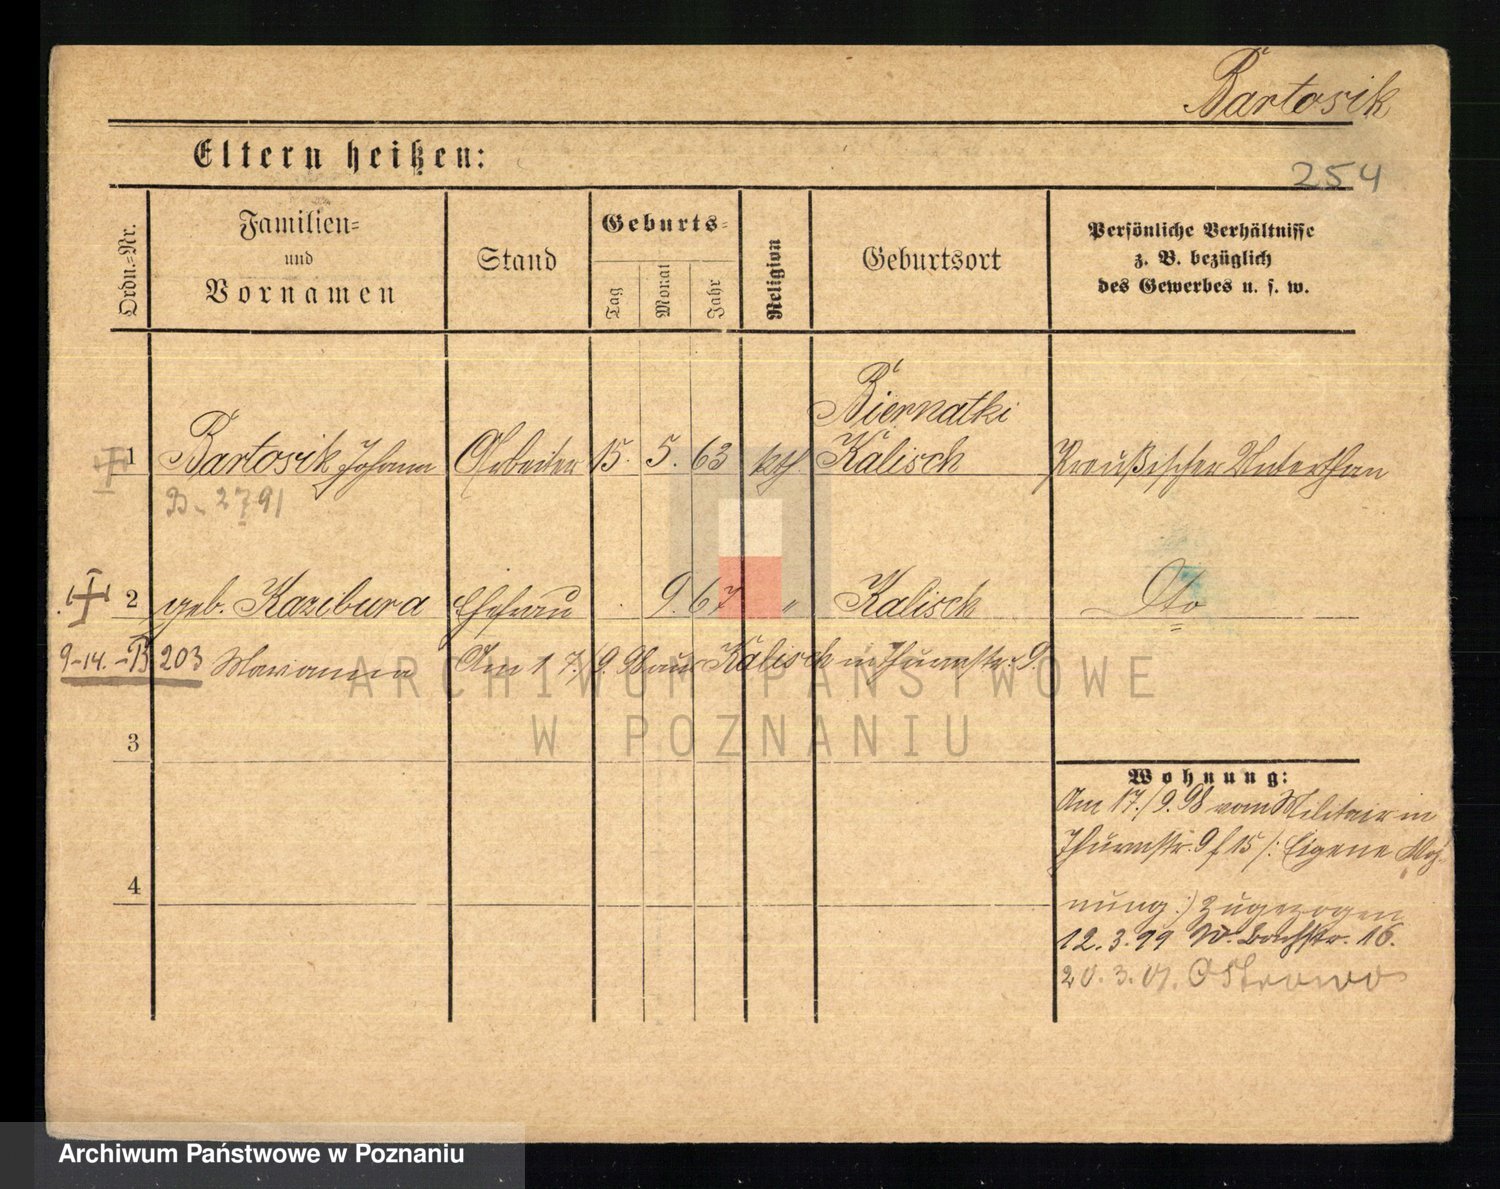 Bartosik
Eltern heißen:
254
Ordn.=Nr.
Familien=
und
Vornamen
Stand
Geburts=
Tag
Monat
Jahr
Religion
Geburtsort
Persönliche Verhältnisse
z. B. bezüglich
des Gewerbes u. s. w.
Biernatki
1 Bartosik Johann Arbeiter 15. 5. 63 kth. Kalisch Preußischer Unterthan
B. 2791
2 geb. Kazibura Ehefrau 9. 67 " Kalisch Dto
9-14. - B 203 Marianna Am 17./9. 98 aus Kalisch in Thurmstr. 9.
3
4
Wohnung:
Am 17./9. 98 vom Militair in
Thurmstr. 9 f 15 /: Eigene Woh
nung :/ zugezogen
12. 3. 99 W. Bachstr. 16.
20. 3. 01. Ostrowo
ARCHIWUM PAŃSTWOWE
W POZNANIU
Archiwum Państwowe w Poznaniu